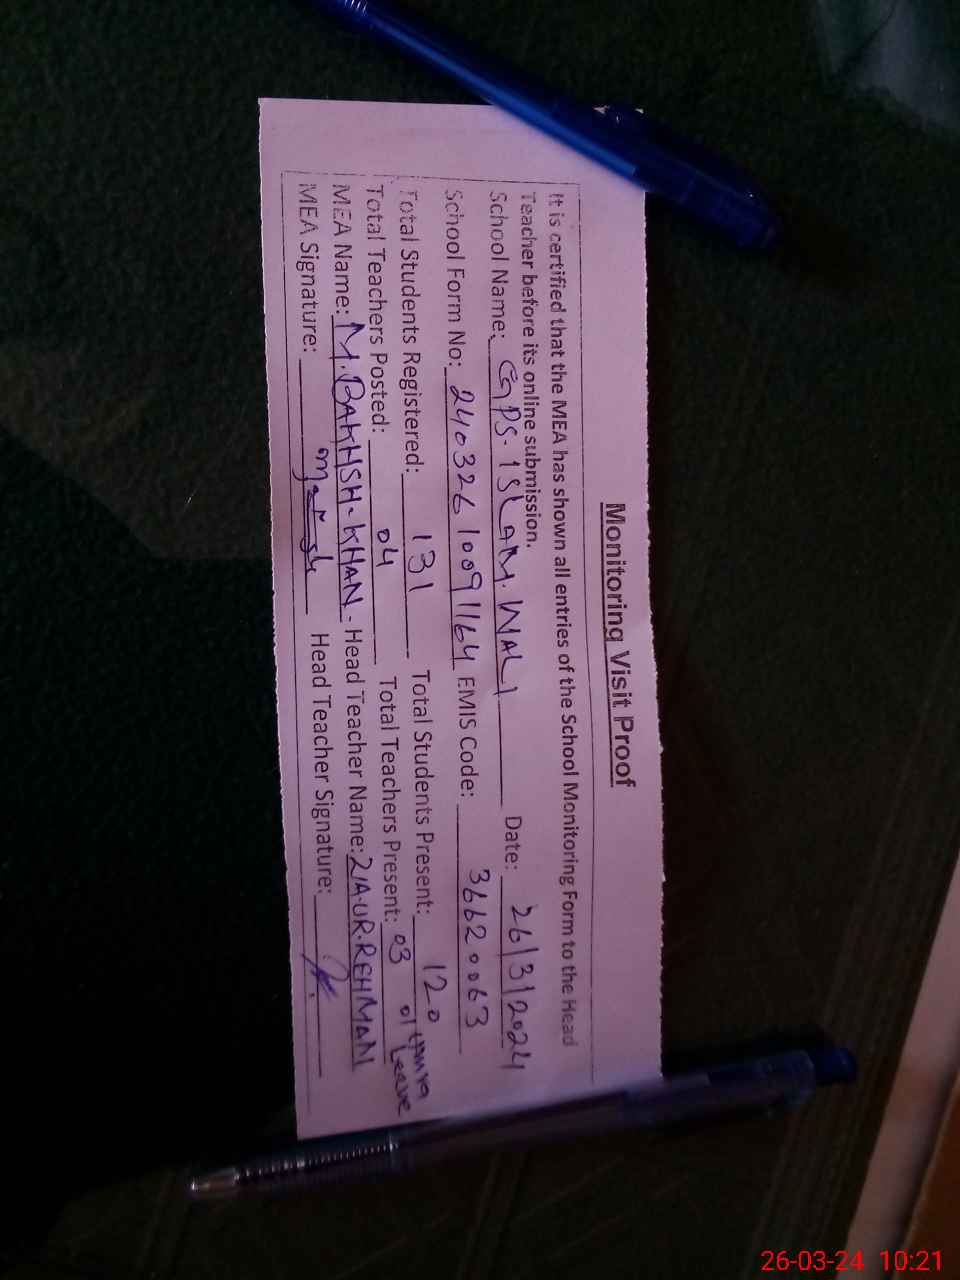 Monitoring Visit Proof
It is certified that the MEA has shown all entries of the School Monitoring Form to the Head
Teacher before its online submission.
School Name: GPS. ISLAM. WALI Date: 26/3/2024
School Form No: 24032610091164 EMIS Code: 36620063
Total Students Registered: 131 Total Students Present: 120
Total Teachers Posted: 04 Total Teachers Present: 03 01 Umra Leave
MEA Name: M. BAKHSH-KHAN- Head Teacher Name: ZIA.UR.REHMAN
MEA Signature: Head Teacher Signature:
26-03-24 10:21